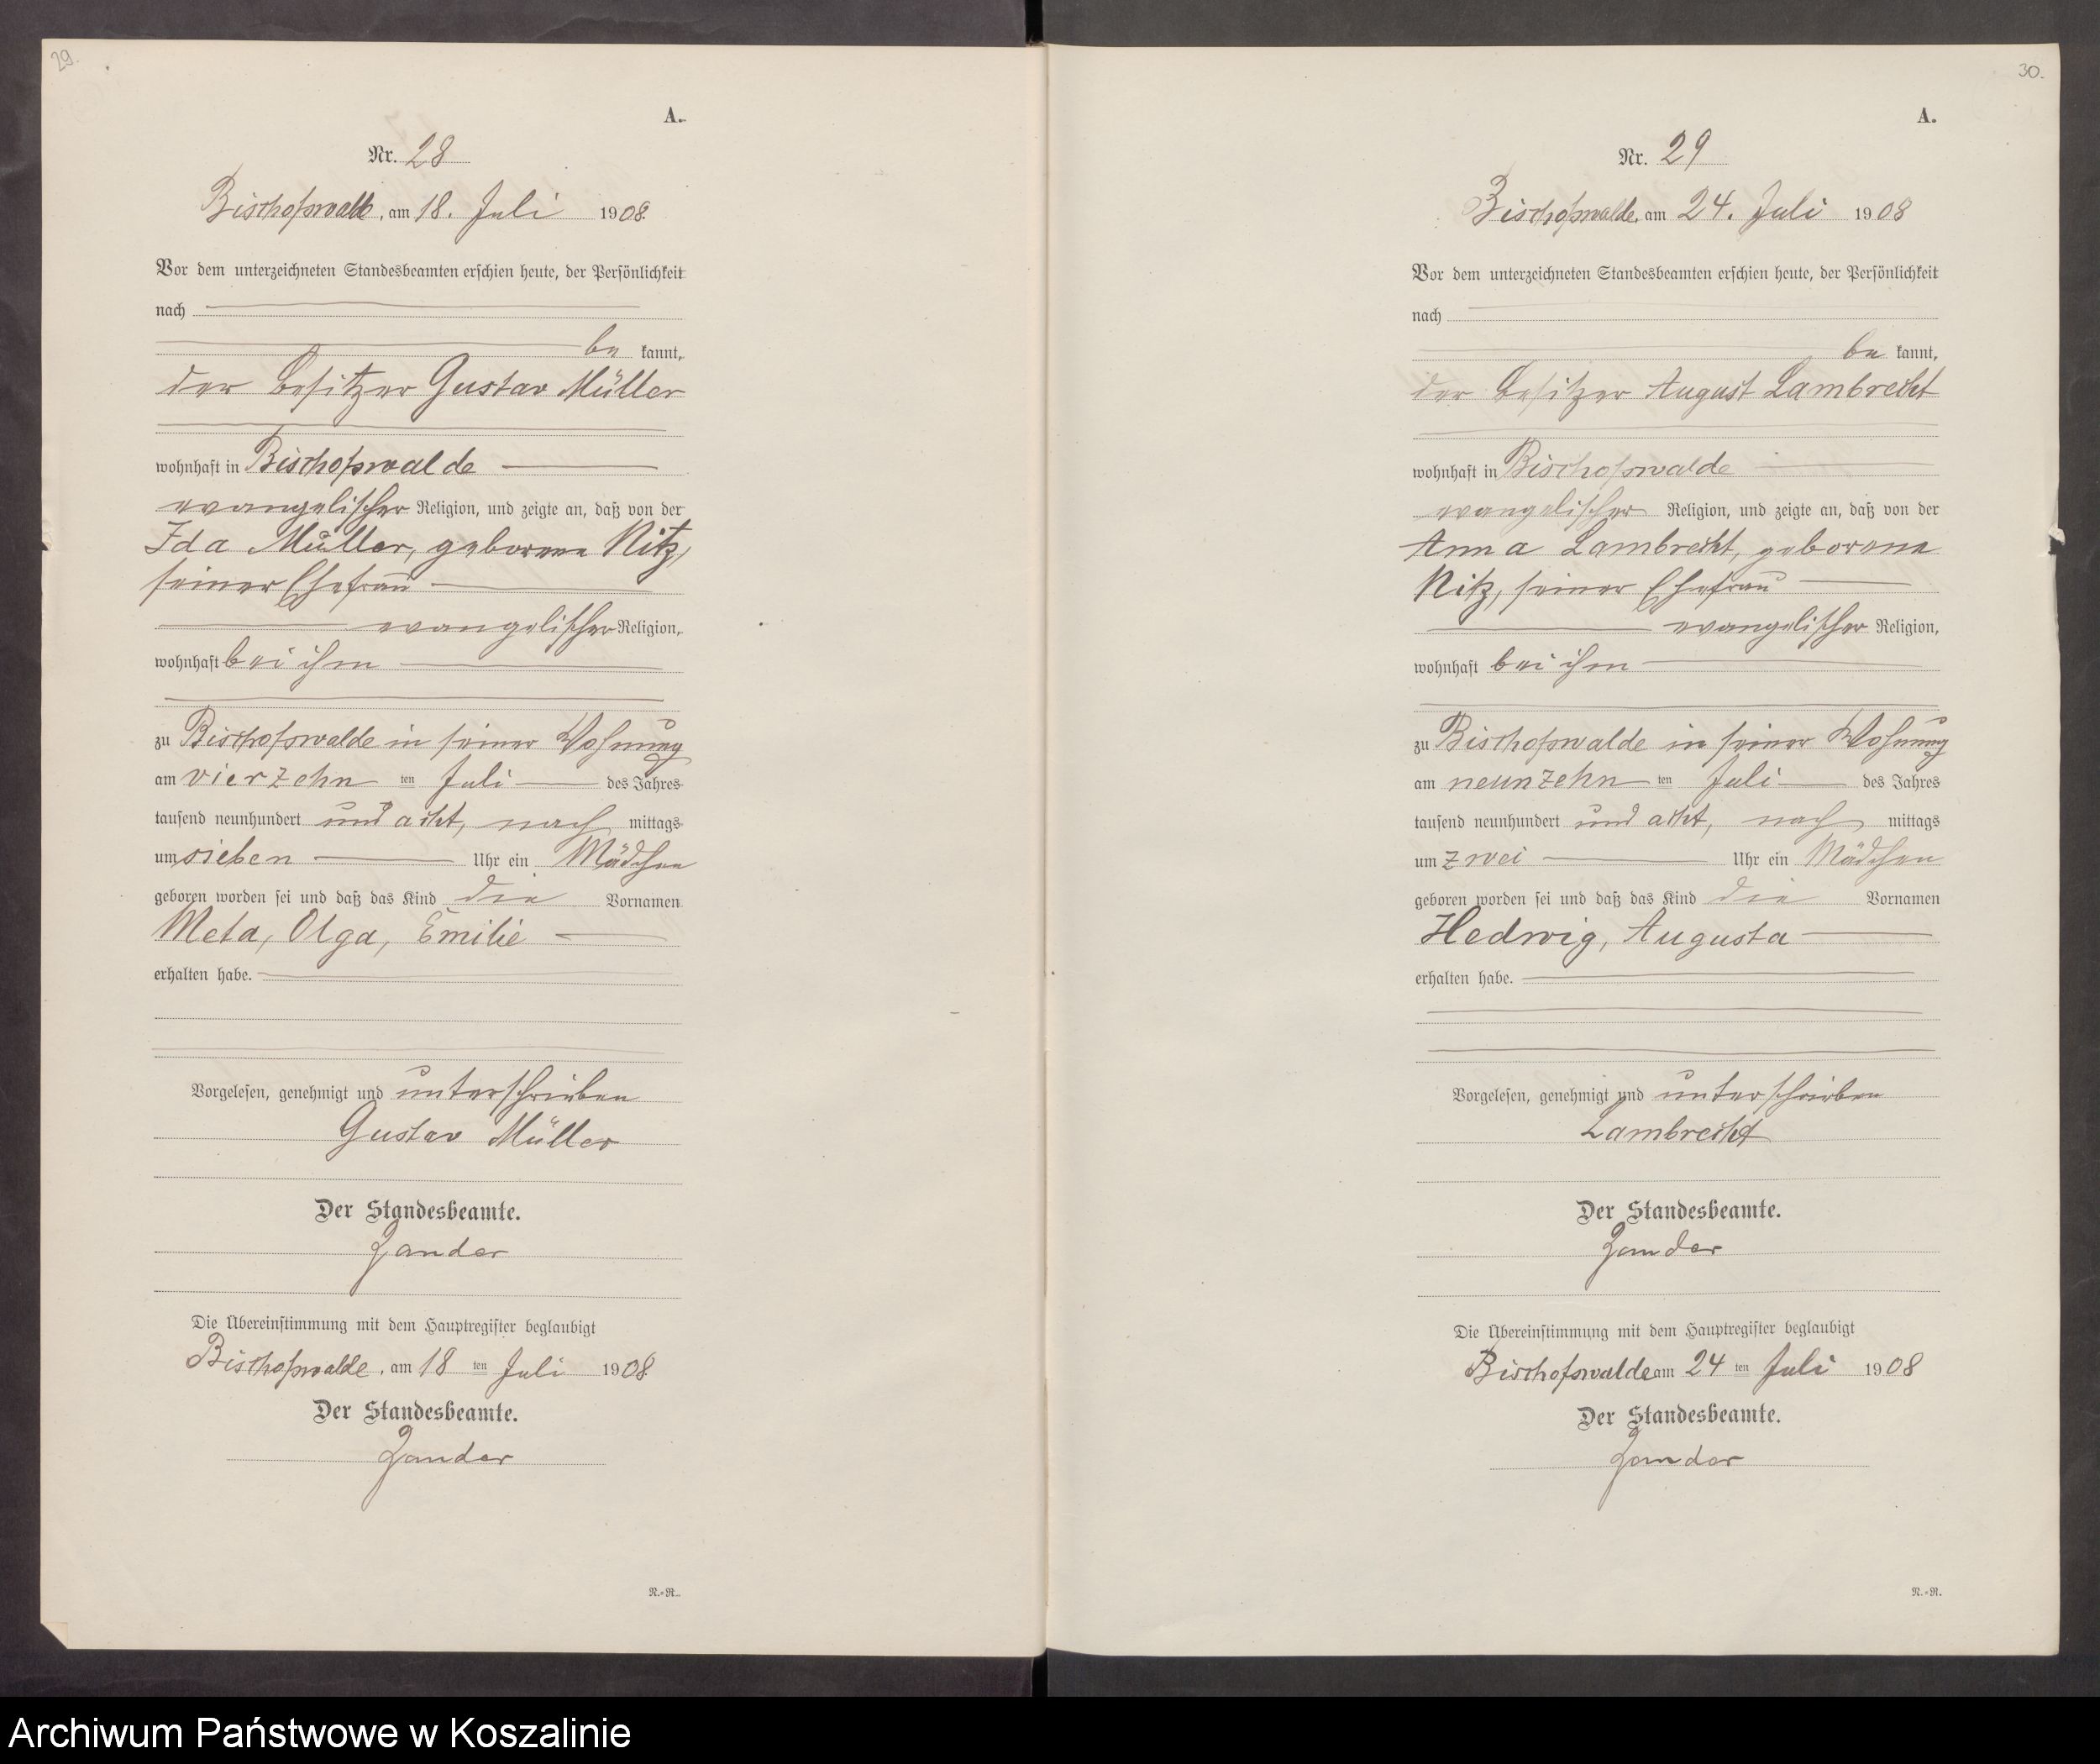 29.
A.
Nr. 28
Bischofswalde, am 18. Juli 1908.
Vor dem unterzeichneten Standesbeamten erschien heute, der Persönlichkeit
nach
be kannt,
der Besitzer Gustav Müller
wohnhaft in Bischofswalde
evangelischer Religion, und zeigte an, daß von der
Ida Müller, geborene Nitz,
seiner Ehefrau
evangelischer Religion,
wohnhaft bei ihm
zu Bischofswalde in seiner Wohnung
am vierzehn ten Juli des Jahres
tausend neunhundert und acht, nach mittags
um sieben Uhr ein Mädchen
geboren worden sei und daß das Kind die Vornamen
Meta, Olga, Emilie
erhalten habe.
Vorgelesen, genehmigt und unterschrieben
Gustav Müller
Der Standesbeamte.
Zander
Die Übereinstimmung mit dem Hauptregister beglaubigt
Bischofswalde, am 18 ten Juli 1908.
Der Standesbeamte.
Zander
N.=R.
30.
A.
Nr. 29
Bischofswalde, am 24. Juli 1908
Vor dem unterzeichneten Standesbeamten erschien heute, der Persönlichkeit
nach
be kannt,
der Besitzer August Lambrecht
wohnhaft in Bischofswalde
evangelischer Religion, und zeigte an, daß von der
Anna Lambrecht, geborene
Nitz, seiner Ehefrau
evangelischer Religion,
wohnhaft bei ihm
zu Bischofswalde in seiner Wohnung
am neunzehn ten Juli des Jahres
tausend neunhundert und acht, nach mittags
um zwei Uhr ein Mädchen
geboren worden sei und daß das Kind die Vornamen
Hedwig, Augusta
erhalten habe.
Vorgelesen, genehmigt und unterschrieben
Lambrecht
Der Standesbeamte.
Zander
Die Übereinstimmung mit dem Hauptregister beglaubigt
Bischofswalde am 24 ten Juli 1908
Der Standesbeamte.
Zander
N.=R.
Archiwum Państwowe w Koszalinie